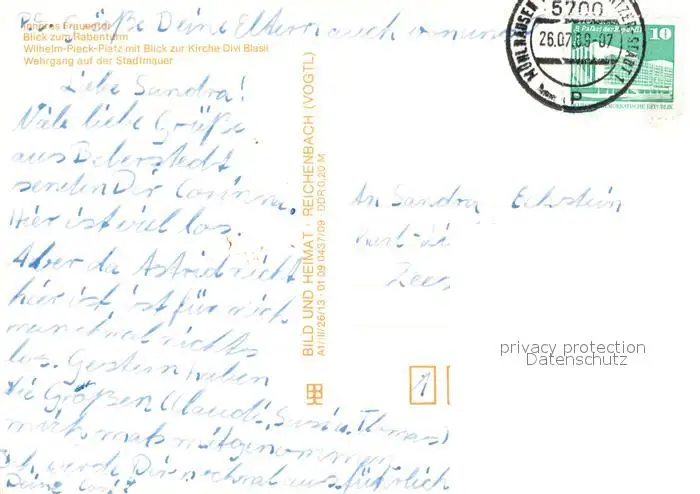 P.S. Grüße Deine Eltern auch von mir
Inneres Frauentor
Blick zum Rabenturm
Wilhelm-Pieck-Platz mit Blick zur Kirche Divi Blasii
Wehrgang auf der Stadtmauer
Liebe Sandra!
Viele liebe Grüße
aus Beberstedt
senden Dir Corinna.
Hier ist viel los.
Aber da Astrid nicht
hier ist, ist für mich
manchmal nichts
los. Gestern haben
die Großen (Claudi, Susi u. Thomas)
mich mal mitgenommen
Ich werde Dir nochmal ausführlich
Deine Cori
BILD UND HEIMAT · REICHENBACH (VOGTL)
A1/III/26/13 · 01 09 0437/09 DDR 0,20 M
MÜHLHAUSEN
5700
26.07.89-07
10
DEMOKRATISCHE REPUBLIK
An Sandra Eckstein
Karl-Li
Zees
1
privacy protection
Datenschutz